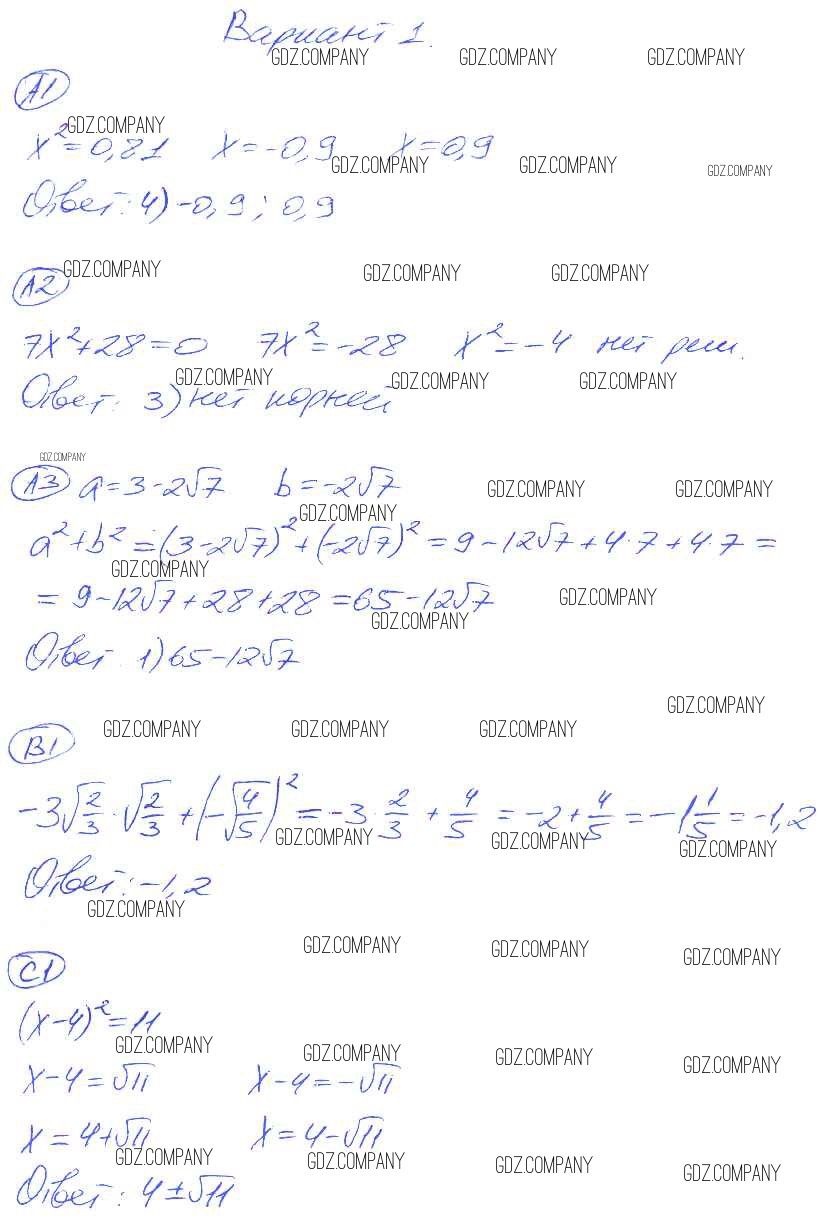 Вариант 1.
GDZ.COMPANY GDZ.COMPANY GDZ.COMPANY
А1
GDZ.COMPANY
x² = 0,81 x = -0,9 x = 0,9
GDZ.COMPANY GDZ.COMPANY GDZ.COMPANY
Ответ: 4) -0,9; 0,9
GDZ.COMPANY GDZ.COMPANY GDZ.COMPANY
А2
7x² + 28 = 0 7x² = -28 x² = -4 нет реш.
GDZ.COMPANY GDZ.COMPANY GDZ.COMPANY
Ответ: 3) нет корней
GDZ.COMPANY
А3 a = 3 - 2√7 b = -2√7
GDZ.COMPANY GDZ.COMPANY
GDZ.COMPANY
a² + b² = (3 - 2√7)² + (-2√7)² = 9 - 12√7 + 4·7 + 4·7 =
GDZ.COMPANY
= 9 - 12√7 + 28 + 28 = 65 - 12√7
GDZ.COMPANY
GDZ.COMPANY
Ответ 1) 65 - 12√7
GDZ.COMPANY
GDZ.COMPANY GDZ.COMPANY GDZ.COMPANY
В1
-3√(2/3) · √(2/3) + (-√(4/5))² = -3 · 2/3 + 4/5 = -2 + 4/5 = -1 1/5 = -1,2
GDZ.COMPANY GDZ.COMPANY GDZ.COMPANY
Ответ: -1,2
GDZ.COMPANY
GDZ.COMPANY GDZ.COMPANY GDZ.COMPANY
С1
(x - 4)² = 11
GDZ.COMPANY GDZ.COMPANY GDZ.COMPANY GDZ.COMPANY
x - 4 = √11 x - 4 = -√11
x = 4 + √11 x = 4 - √11
GDZ.COMPANY GDZ.COMPANY GDZ.COMPANY GDZ.COMPANY
Ответ: 4 ± √11